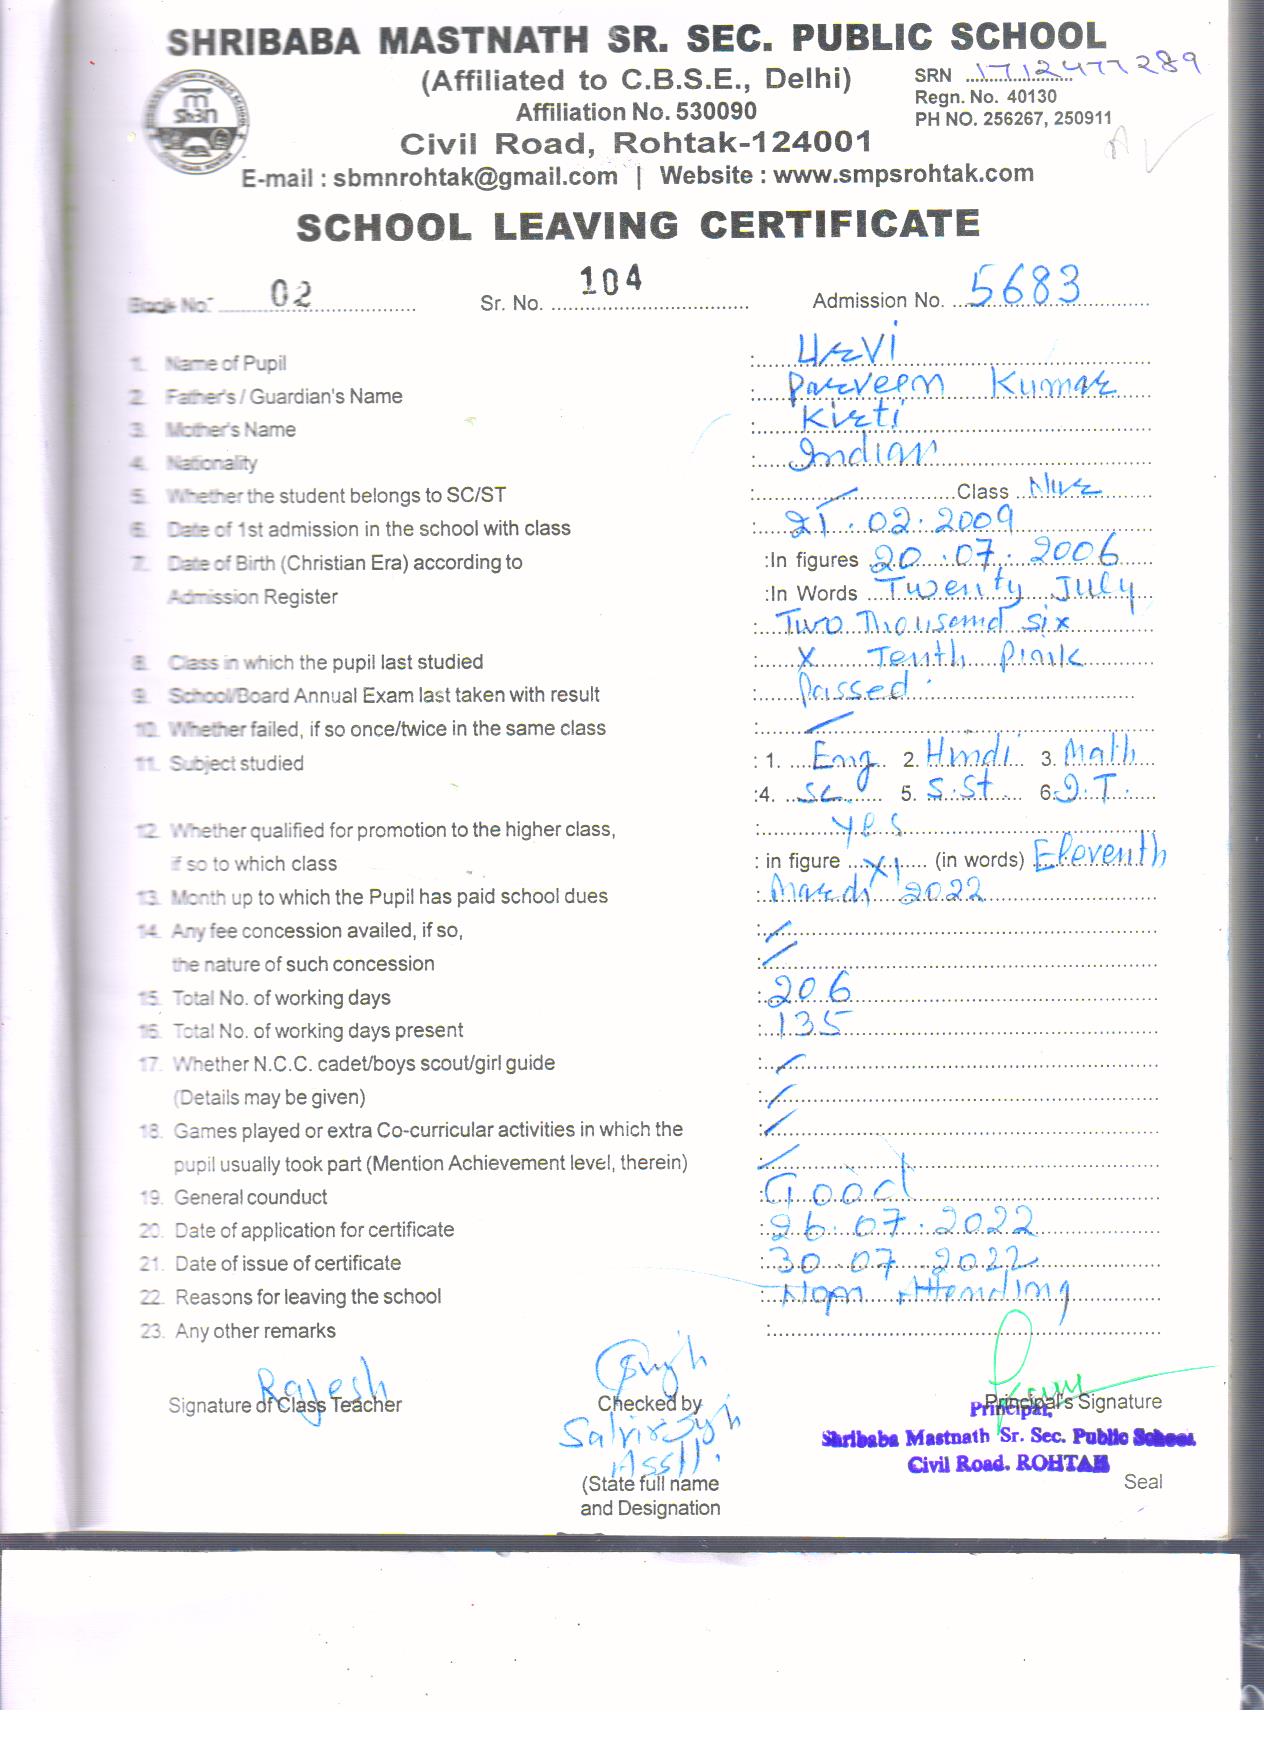 SHRIBABA MASTNATH SR. SEC. PUBLIC SCHOOL
(Affiliated to C.B.S.E., Delhi)
SRN 1712477289
Affiliation No. 530090
Regn. No. 40130
PH NO. 256267, 250911
Civil Road, Rohtak-124001
E-mail : sbmnrohtak@gmail.com | Website : www.smpsrohtak.com
SCHOOL LEAVING CERTIFICATE
Book No. 02 Sr. No. 104 Admission No. 5683
1. Name of Pupil : Urvi
2. Father's / Guardian's Name : Parveen Kumar
3. Mother's Name : Kirti
4. Nationality : Indian
5. Whether the student belongs to SC/ST : Class Nur
6. Date of 1st admission in the school with class : 21.02.2009
7. Date of Birth (Christian Era) according to :In figures 20.07.2006
Admission Register :In Words Twenty July
: Two Thousand six
8. Class in which the pupil last studied : X Tenth Pink
9. School/Board Annual Exam last taken with result : Passed
10. Whether failed, if so once/twice in the same class :
11. Subject studied : 1. Eng 2. Hindi 3. Math
:4. Sc. 5. S.St 6. I.T.
12. Whether qualified for promotion to the higher class, : Yes
if so to which class : in figure XI (in words) Eleventh
13. Month up to which the Pupil has paid school dues : March 2022
14. Any fee concession availed, if so, :
the nature of such concession :
15. Total No. of working days : 206
16. Total No. of working days present : 135
17. Whether N.C.C. cadet/boys scout/girl guide :
(Details may be given) :
18. Games played or extra Co-curricular activities in which the :
pupil usually took part (Mention Achievement level, therein) :
19. General counduct : Good
20. Date of application for certificate : 26.07.2022
21. Date of issue of certificate : 30.07.2022
22. Reasons for leaving the school : Non Attending
23. Any other remarks :
Rajesh
Signature of Class Teacher Checked by Principal's Signature
Principal,
Shribaba Mastnath Sr. Sec. Public School
Civil Road, ROHTAK
(State full name Seal
and Designation